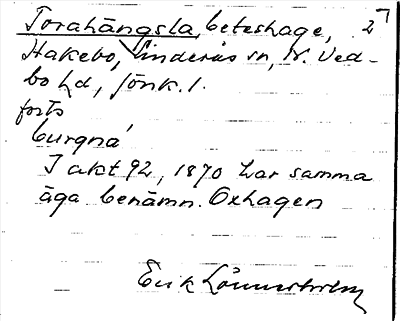 Torahängsla, beteshage, 27
Hakebo, Linderås sn, N. Ved-
bo hd, Jönk. l.
forts
burgna'
I akt 92, 1870 har samma
äga benämn. Oxhagen
Erik Lönnerholm